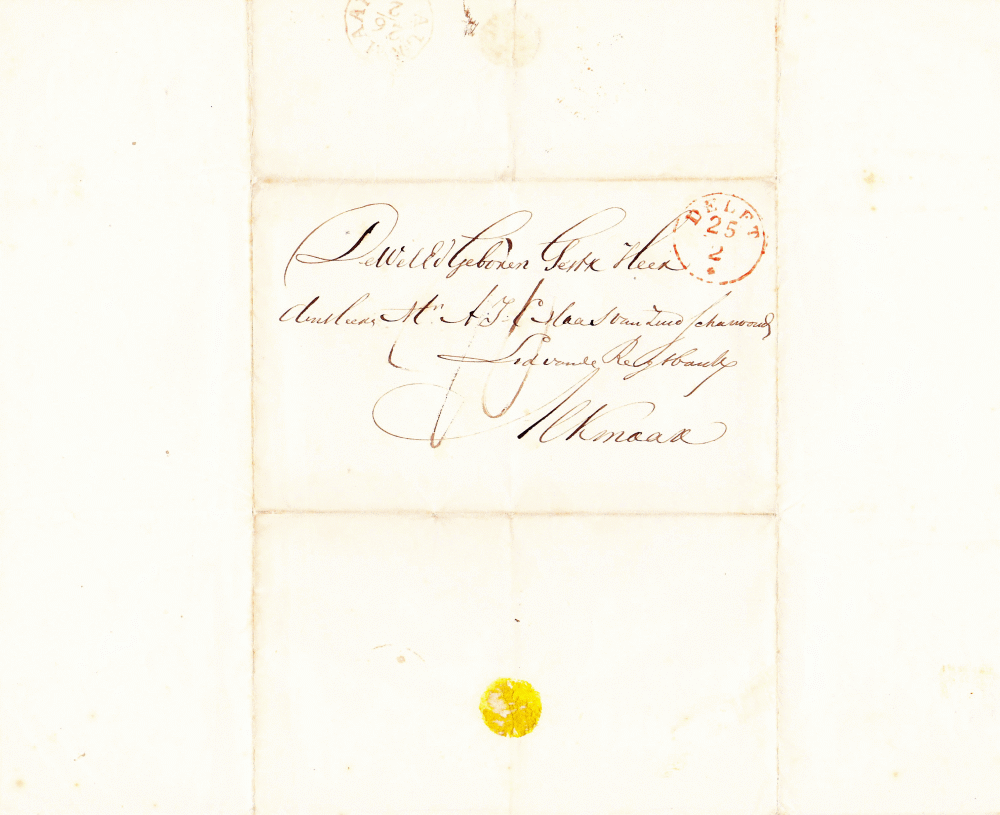 ALKMAAR
26/2
DELFT
25
2
De Wel Ed Geboren Gestr Heer
den Heer Mr A. J. C. Maas van Zuid Scharwoud
Lid van de Regtbank
Alkmaar